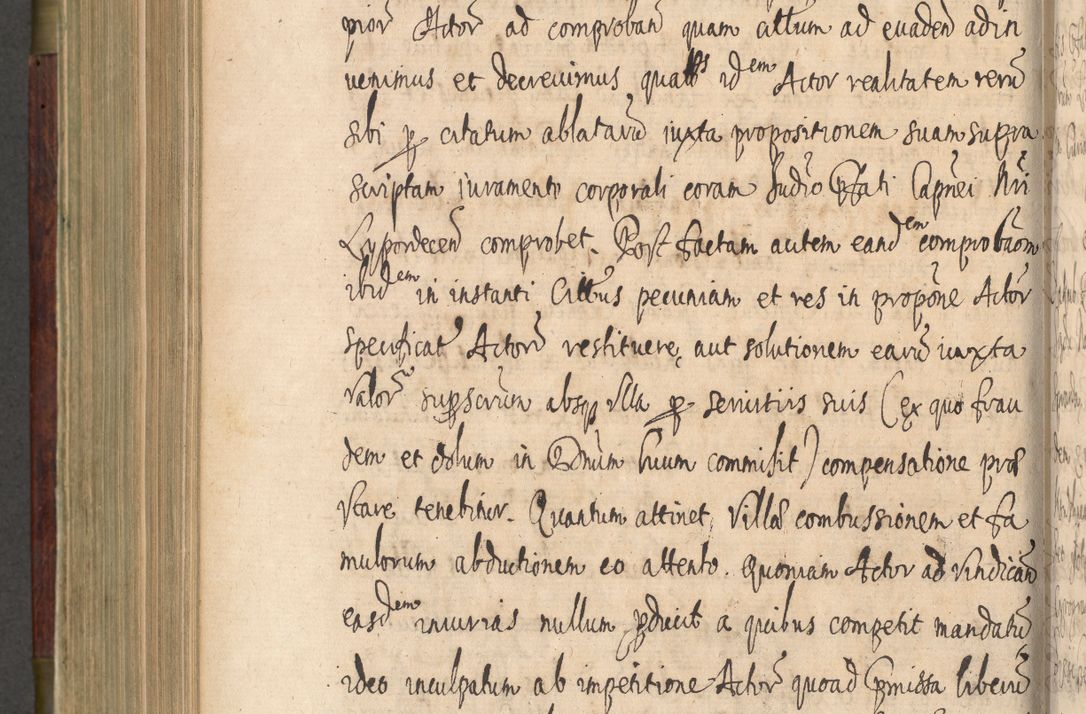 pior Actor ad comproban quam cittum ad evaden adin
venimus et decrevimus quatts idem Actor realitatem reru
sibi p citatum ablataru iuxta propositionem suam supra
scriptam iuramento corporali coram Judio Pfati Capnei Nri
Lypordecen comprobet. Post factam autem eandem comprobaom
ibidem in instanti Cittus pecuniam et res in propone Actor
specificat Actori restituere, aut solutionem earu iuxta
valor supscrum absq illa p servitiis suis (ex quo frau
dem et dolum in Dnum suum commisit) compensatione præ
stare tenebitur. Quantum attinet, Villæ combussionem et fa
mulorum abductionem eo attento. Quoniam Actor ad vindican
easdem iniurias nullum pducit a quibus competit mandatu
ideo inculpatum ab impetitione Actor quoad Pmissa liberu